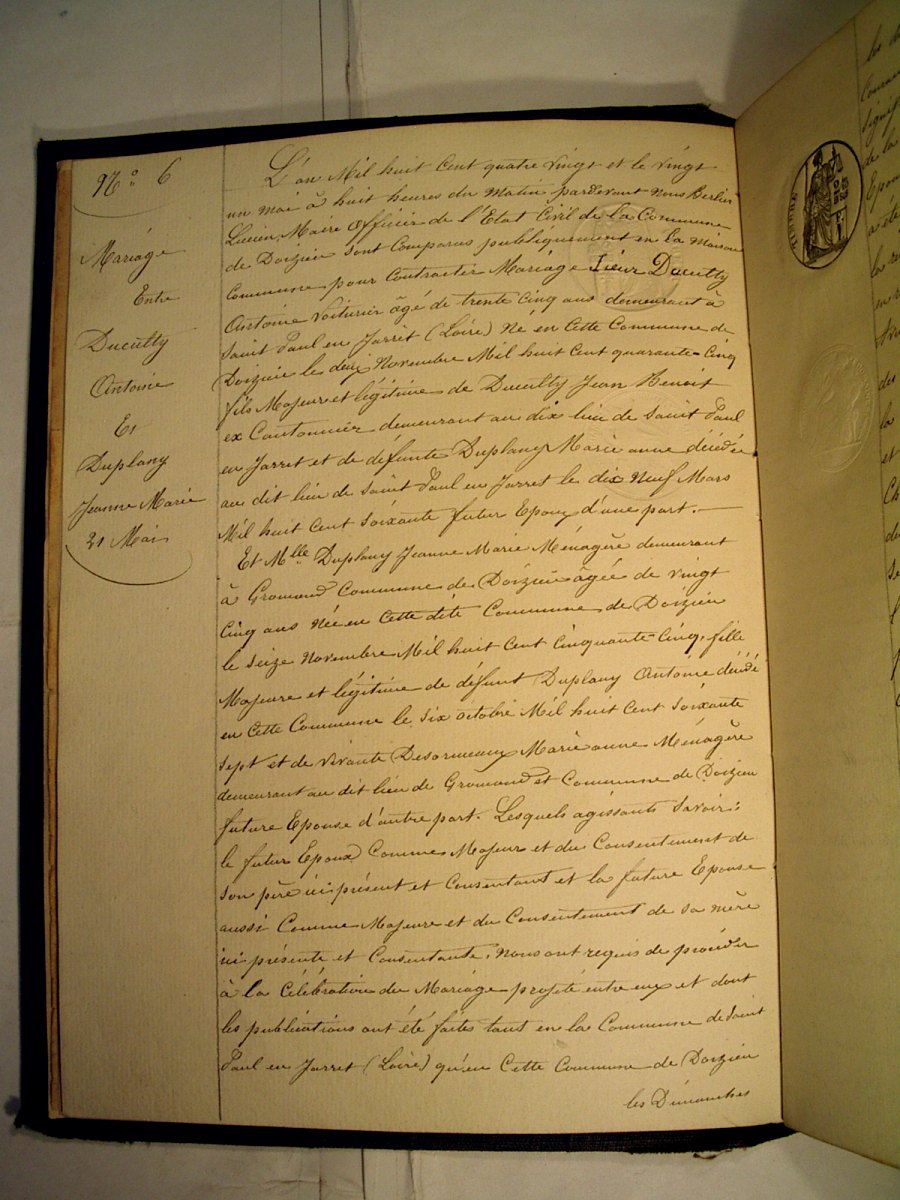 N.º 6
Mariage
Entre
Ducultty
Antoine
Et
Duplany
Jeanne Marie
21 Mai
L'an Mil huit Cent quatre vingt et le vingt
un mai à huit heures du matin pardevant nous Berlier
Lucien, Maire Officier de l'Etat Civil de la Commune
de Doizieu sont Comparus publiquement en la Maison
Commune pour Contracter Mariage Sieur Ducultty
Antoine Voiturier âgé de trente cinq ans demeurant à
Saint Paul en Jarret (Loire) Né en Cette Commune de
Doizieu le deux Novembre Mil huit Cent quarante-Cinq
fils Majeur et légitime de Ducultty Jean Benoit
ex Cantonnier demeurant au dix lieu de Saint Paul
en Jarret et de défunte Duplany Marie anne décédée
au dit lieu de Saint Paul en Jarret le dix Neuf Mars
Mil huit Cent soixante futur Epoux d'une part.—
Et Mlle Duplany Jeanne Marie Ménagère demeurant
à Gromand Commune de Doizieu âgée de vingt
Cinq ans Née en Cette dite Commune de Doizieu
le seize Novembre Mil huit Cent Cinquante-Cinq, fille
Majeure et légitime de défunt Duplany Antoine décédé
en Cette Commune le six octobre Mil huit Cent soixante
sept et de vivante Desormeaux Marie anne Ménagère
demeurant au dit lieu de Gromand et Commune de Doizieu
future Epouse d'autre part. Lesquels agissants Savoir:
le futur Epoux Comme Majeur et du Consentement de
son père ici présent et Consentant et la future Epouse
aussi Comme Majeure et du Consentement de sa mère
ici présente et Consentante, Nous ont requis de procéder
à la Célébration du Mariage projeté entre eux et dont
les publications ont été faites tant en la Commune de Saint
Paul en Jarret (Loire) qu'en Cette Commune de Doizieu
les Dimanches
TIMBRE